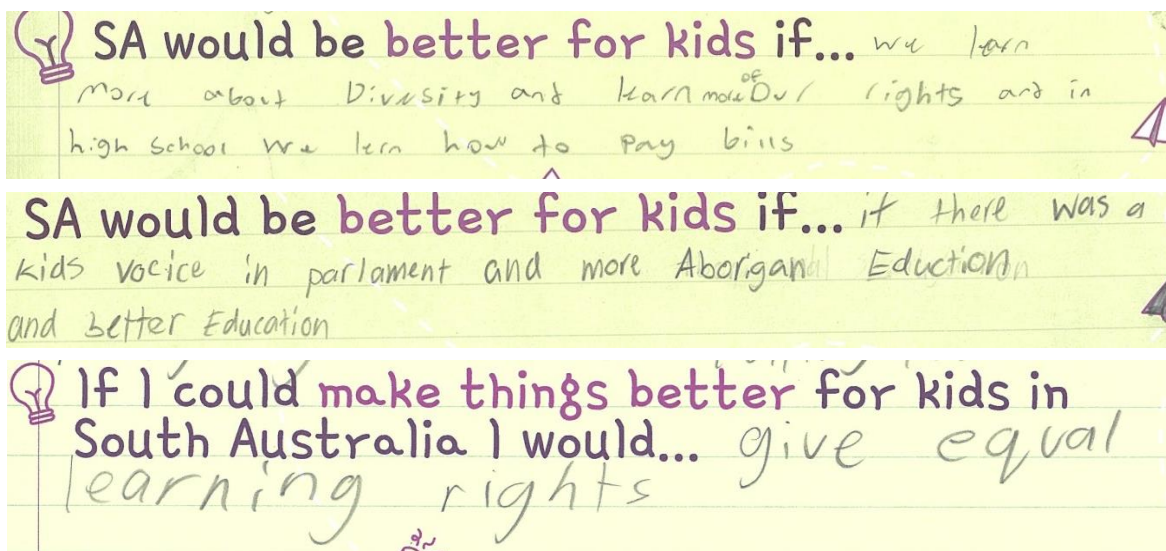 SA would be better for kids if... we learn
more about Diversity and learn more of Our rights and in
high school we lern how to pay bills
SA would be better for kids if... if there was a
kids vocice in parlament and more Aboriganal Eduction
and better Education
If I could make things better for kids in
South Australia I would... give equal
learning rights